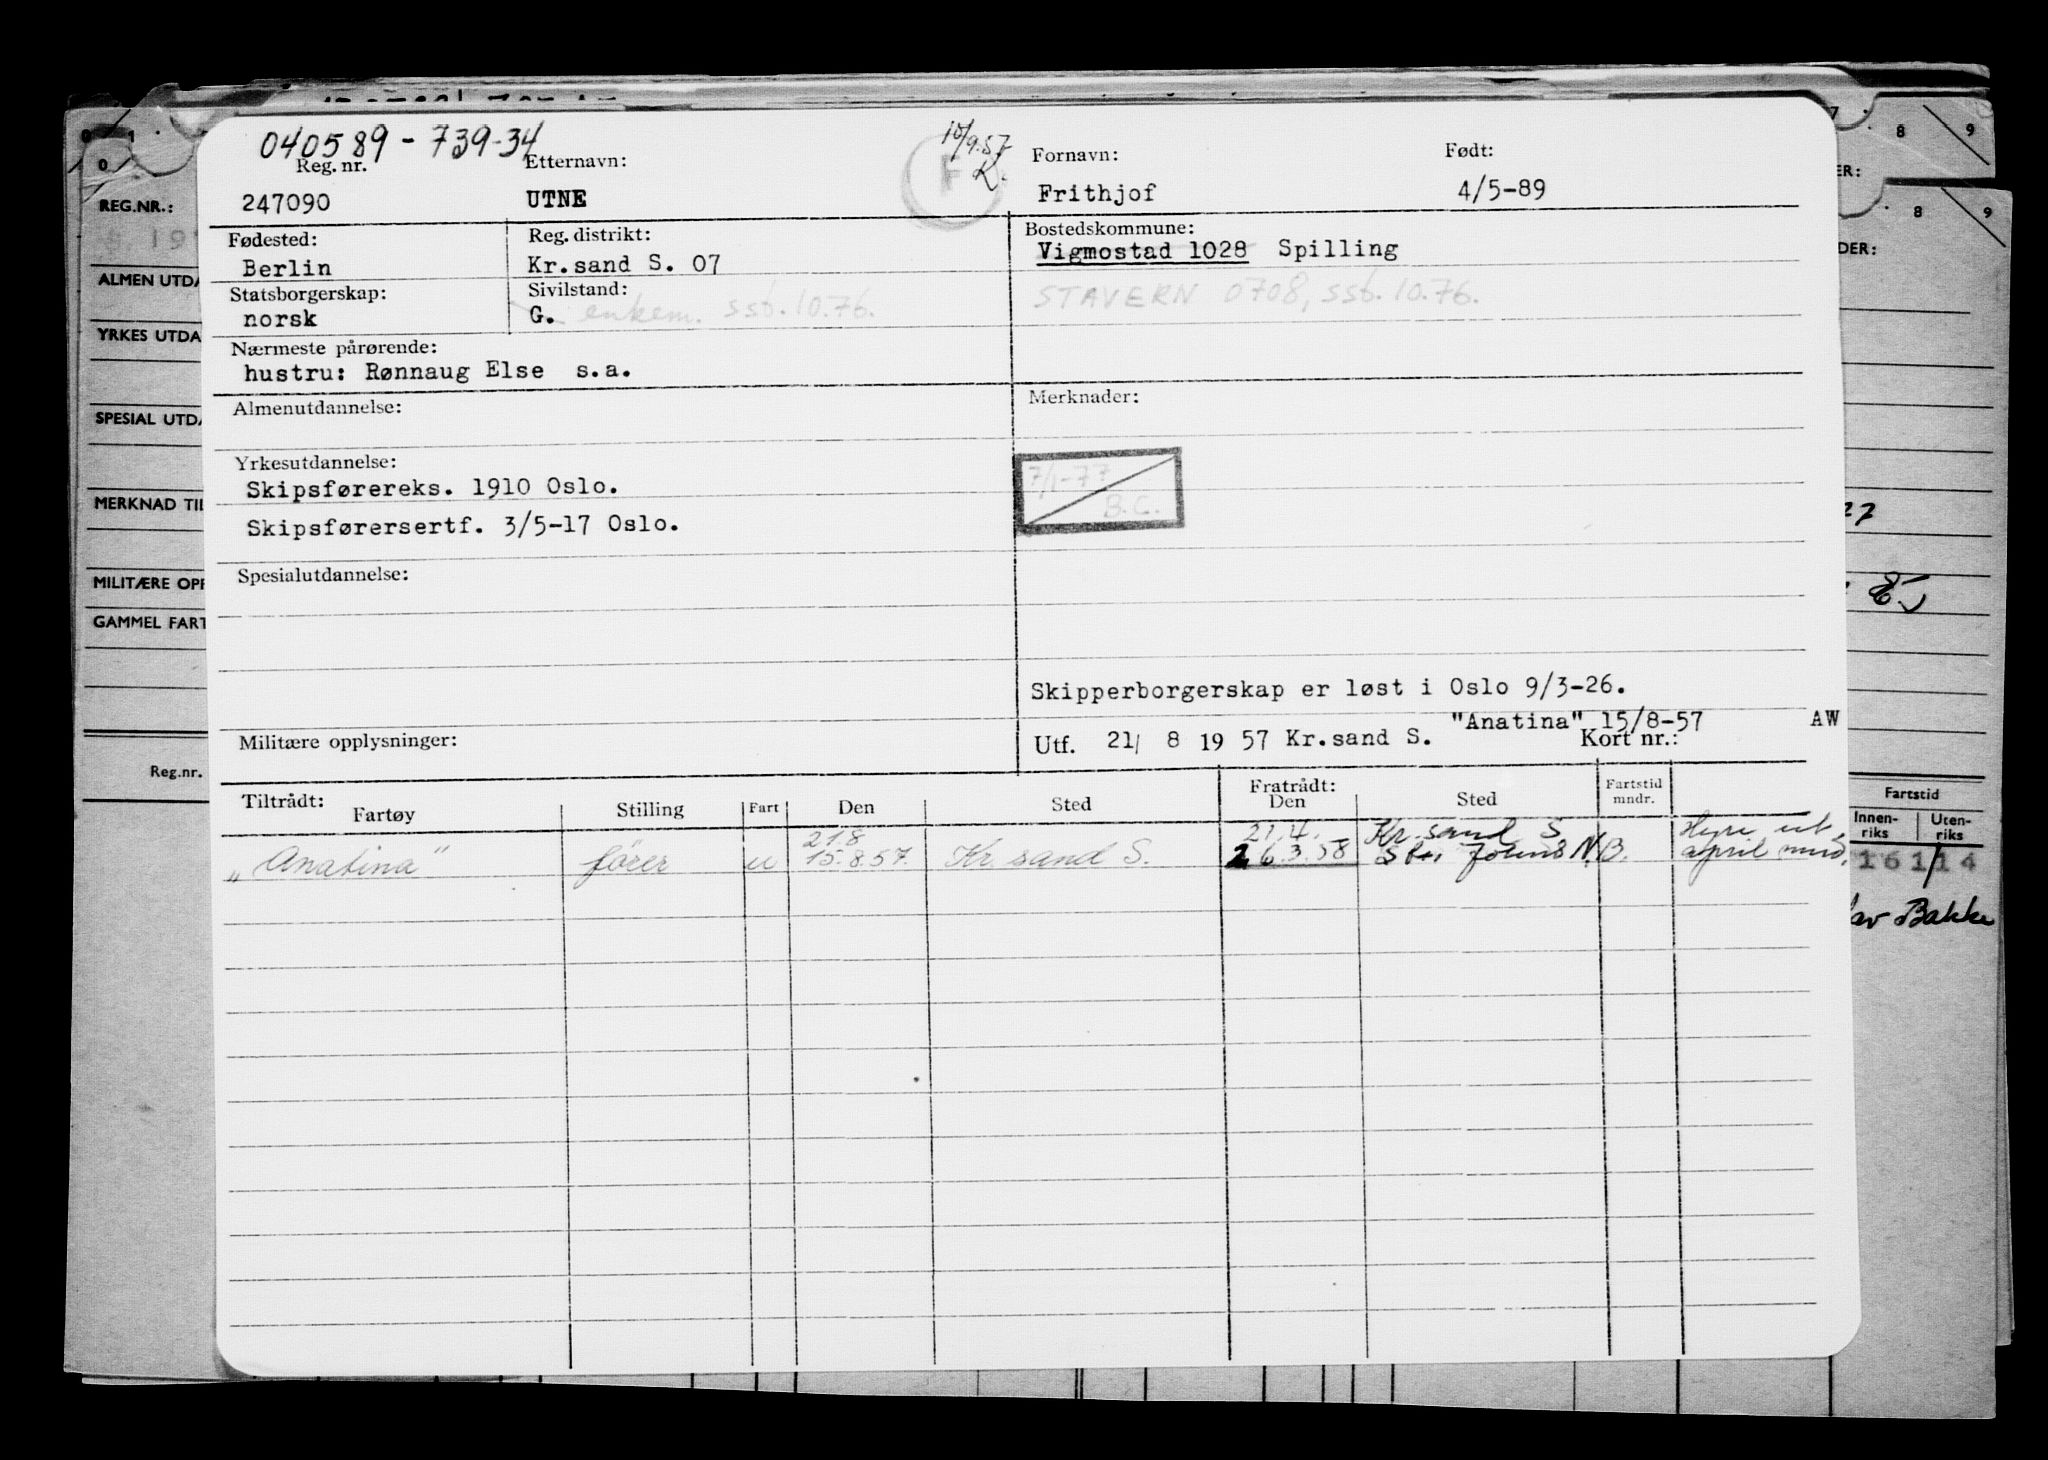 040589-739-34
10/9.57
K.
F
Reg. nr. Etternavn: Fornavn: Født:
247090 UTNE Frithjof 4/5-89
Fødested: Reg. distrikt: Bostedskommune:
Berlin Kr.sand S. 07 Vigmostad 1028 Spilling
Statsborgerskap: Sivilstand: STAVERN 0708, ssb. 10.76.
norsk G. enkem. ssb. 10.76.
Nærmeste pårørende:
hustru: Rønnaug Else s.a.
Almenutdannelse: Merknader:
Yrkesutdannelse:
Skipsførereks. 1910 Oslo. 7/1-77
B.C.
Skipsførersertf. 3/5-17 Oslo.
Spesialutdannelse:
Skipperborgerskap er løst i Oslo 9/3-26.
"Anatina" 15/8-57 AW
Militære opplysninger: Utf. 21/ 8 19 57 Kr.sand S. Kort nr.:
Tiltrådt: Fratrådt: Fartstid
Fartøy Stilling Fart Den Sted Den Sted mndr.
21.8 21.4. Kr.sand S Hyre ut
"Anatina" fører u 15.8.57. Kr sand S. 26.3.58 St. Johns N.B. april mnd.
REG.NR.:
ALMEN UTDA
YRKES UTDA
SPESIAL UTDA
MERKNAD TIL
MILITÆRE OPP
GAMMEL FART
Reg.nr.
ER:
DER:
8 9
8 9
27
Fartstid
Innen-riks Uten-riks
161/14
Bakke